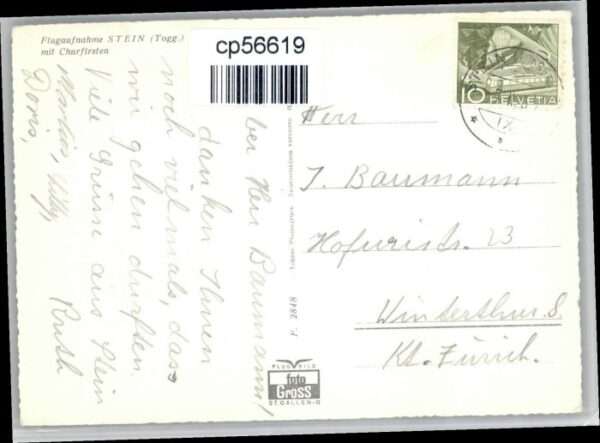 Flugaufnahme STEIN (Togg.)
mit Churfirsten
cp56619
10
HELVETIA
Lieber Herr Baumann!
danken Ihnen
noch vielmals, dass
wir gehen durften
Viele Grüsse aus Stein
Ruth
Doris,
Herr
J. Baumann
Hofuristr. 23
Winterthur S.
Kt. Zürich.
F. 2818
FLUGBILD
foto
Gross
ST. GALLEN-O